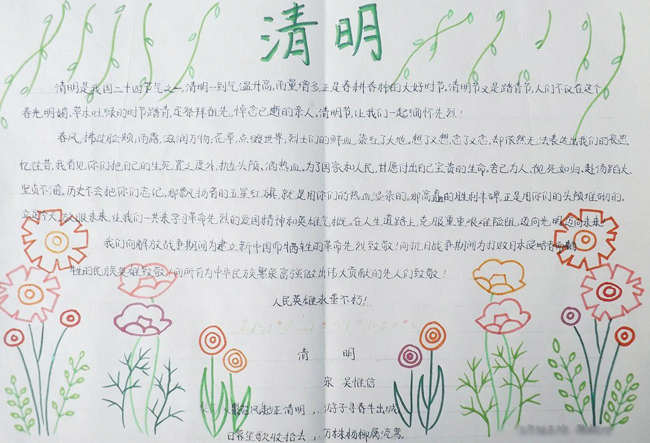 清明
清明是我国二十四节气之一,清明一到气温升高,雨量增多,正是春耕春种的大好时节,清明节又是踏青节,人们不仅在这个
春光明媚、草木吐绿的时节踏青,还祭拜祖先,悼念已逝的亲人,清明节,让我们一起缅怀先烈!
春风,拂过脸颊,雨露,滋润万物,花草,点缀世界,烈士们的鲜血,染红了大地,想了又想,念了又念,却依然无法表达出我们的哀思
忆往昔,我看见你们把自己的生死置之度外,抛头颅、洒热血,为了国家和人民,甘愿付出自己宝贵的生命,舍己为人,视死如归,赴汤蹈火
历史不会把你们忘记,那飘扬着的五星红旗,就是用你们的热血染的,那高矗的胜利丰碑,正是用你们的头颅堆砌的。
让我们一起来学习革命先烈的爱国精神和英雄气概,在人生道路上,克服重重艰难险阻,迈向光明,迈向未来
我们向解放战争期间为建立新中国而牺牲的革命先烈致敬!向抗日战争期间为打败日本侵略者
牲的民族英雄致敬!向所有为中华民族繁荣富强做出伟大贡献的先人们致敬!
人民英雄永垂不朽!
清 明
宋 吴惟信
风起正清明,游子寻春半出城
日暮笙歌收拾去,万株杨柳属流莺